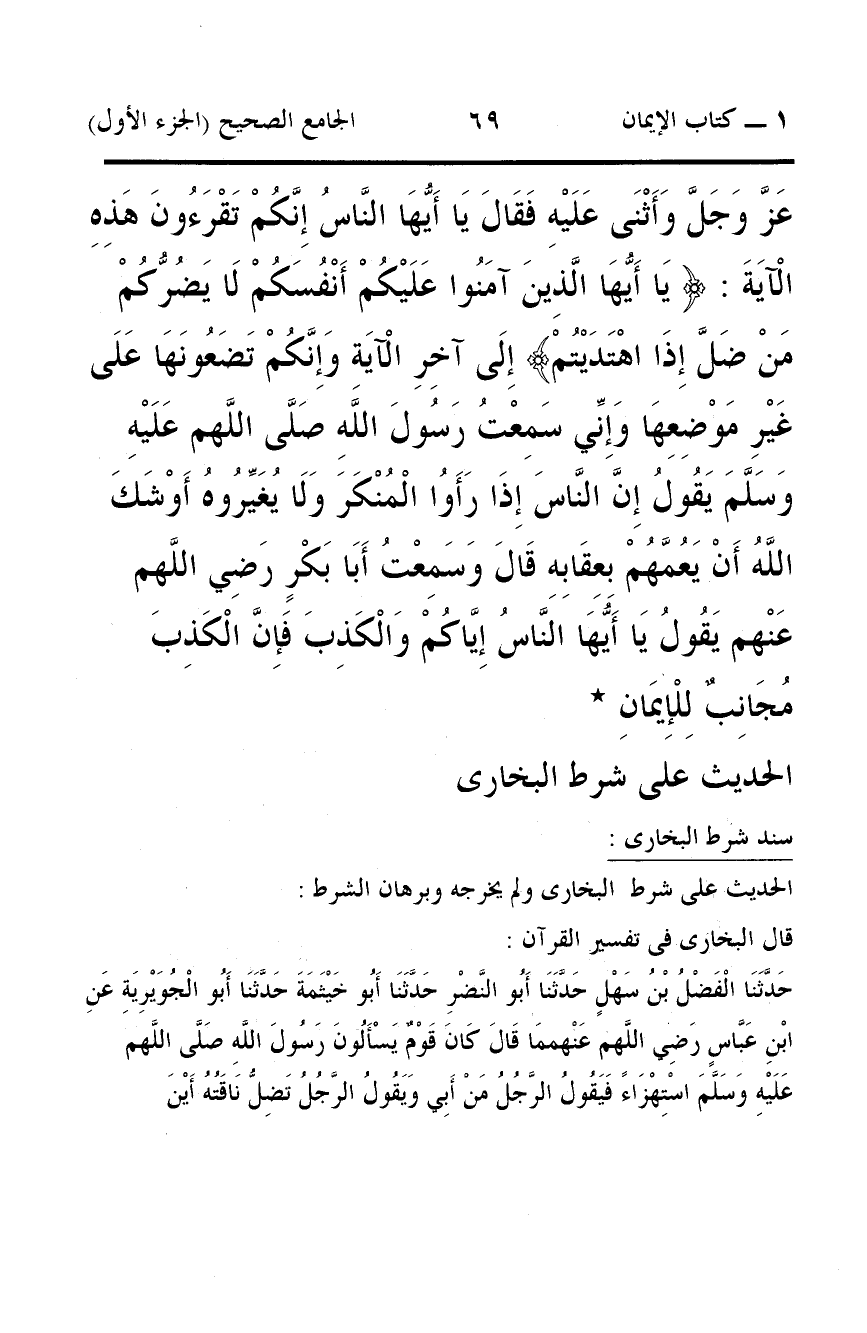 ١ ــ كتاب الإيمان ٦٩ الجامع الصحيح (الجزء الأول)
عَزَّ وَجَلَّ وَأَثْنَى عَلَيْهِ فَقَالَ يَا أَيُّهَا النَّاسُ إِنَّكُمْ تَقْرَءُونَ هَذِهِ
الْآيَةَ : ﴿ يَا أَيُّهَا الَّذِينَ آمَنُوا عَلَيْكُمْ أَنْفُسَكُمْ لَا يَضُرُّكُمْ
مَنْ ضَلَّ إِذَا اهْتَدَيْتُمْ﴾ إِلَى آخِرِ الْآيَةِ وَإِنَّكُمْ تَضَعُونَهَا عَلَى
غَيْرِ مَوْضِعِهَا وَإِنِّي سَمِعْتُ رَسُولَ اللَّهِ صَلَّى اللَّهم عَلَيْهِ
وَسَلَّمَ يَقُولُ إِنَّ النَّاسَ إِذَا رَأَوُا الْمُنْكَرَ وَلَا يُغَيِّرُوهُ أَوْشَكَ
اللَّهُ أَنْ يَعُمَّهُمْ بِعِقَابِهِ قَالَ وَسَمِعْتُ أَبَا بَكْرٍ رَضِي اللَّهم
عَنْهم يَقُولُ يَا أَيُّهَا النَّاسُ إِيَّاكُمْ وَالْكَذِبَ فَإِنَّ الْكَذِبَ
مُجَانِبٌ لِلْإِيمَانِ *
الحديث على شرط البخارى
سند شرط البخارى :
الحديث على شرط البخارى ولم يخرجه وبرهان الشرط :
قال البخارى فى تفسير القرآن :
حَدَّثَنَا الْفَضْلُ بْنُ سَهْلٍ حَدَّثَنَا أَبُو النَّضْرِ حَدَّثَنَا أَبُو خَيْثَمَةَ حَدَّثَنَا أَبُو الْجُوَيْرِيَةِ عَنِ
ابْنِ عَبَّاسٍ رَضِي اللَّهم عَنْهمما قَالَ كَانَ قَوْمٌ يَسْأَلُونَ رَسُولَ اللَّهِ صَلَّى اللَّهم
عَلَيْهِ وَسَلَّمَ اسْتِهْزَاءً فَيَقُولُ الرَّجُلُ مَنْ أَبِي وَيَقُولُ الرَّجُلُ تَضِلُّ نَاقَتُهُ أَيْنَ